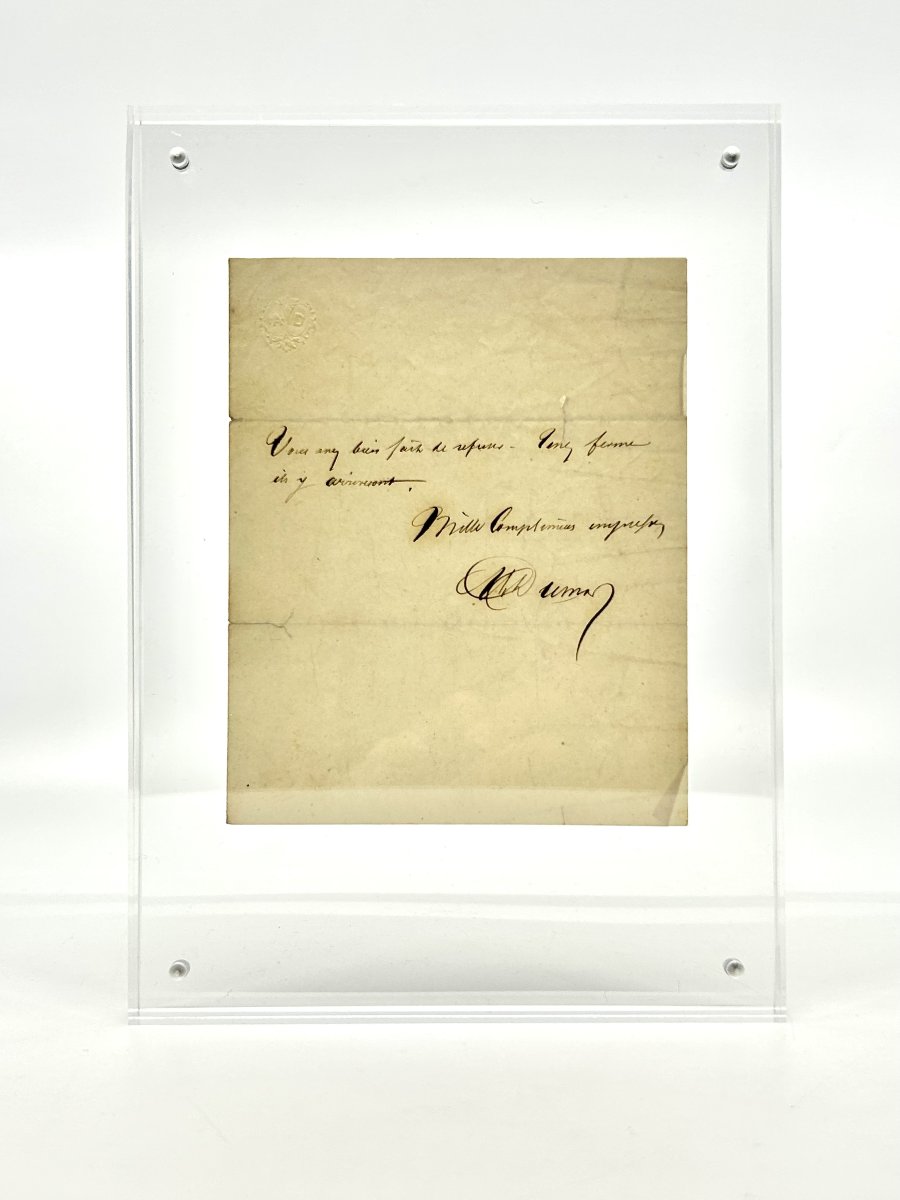 AD
Vous avez bien fait de refuser – Tenez ferme
ils y arriveront.
Mille Compliments empressés
Alex Dumas